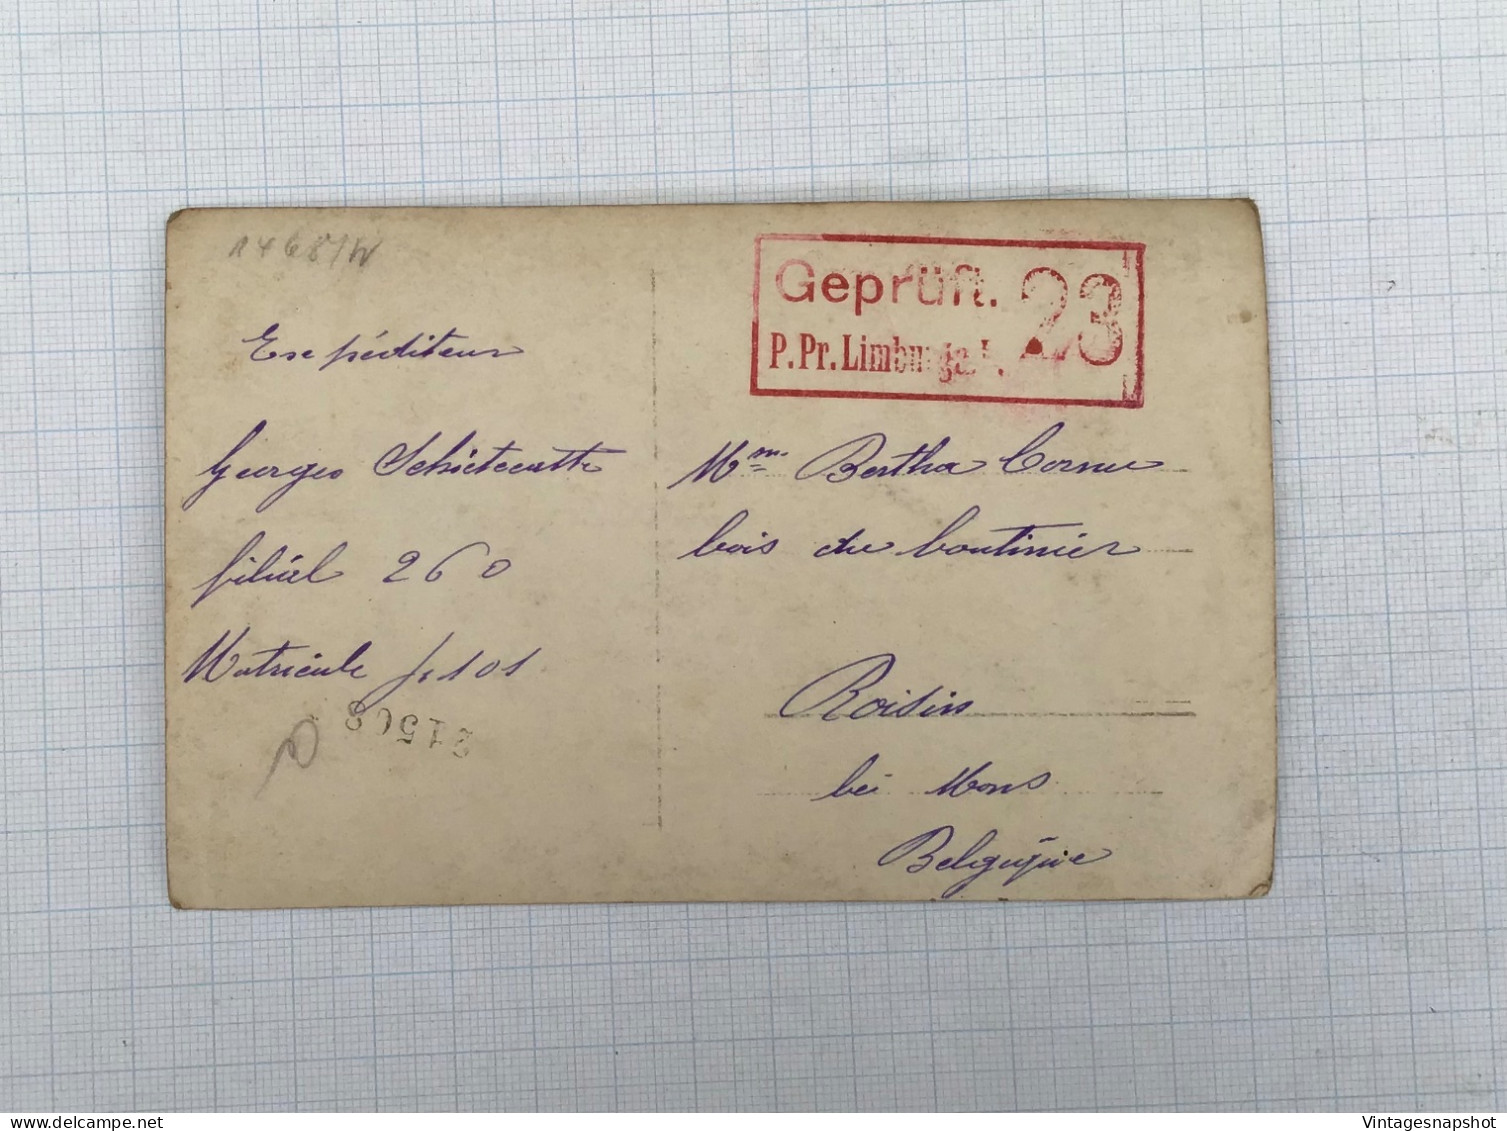 Expéditeur
Georges Schietecatte
filiéel 260
Matricule 1.101
31508
Geprüft. 23
P.Pr.Limburg a. L.
Mme Bertha Cornu
bois du boutinier
Roisin
lei Mons
Belgique
Vintagesnapshot